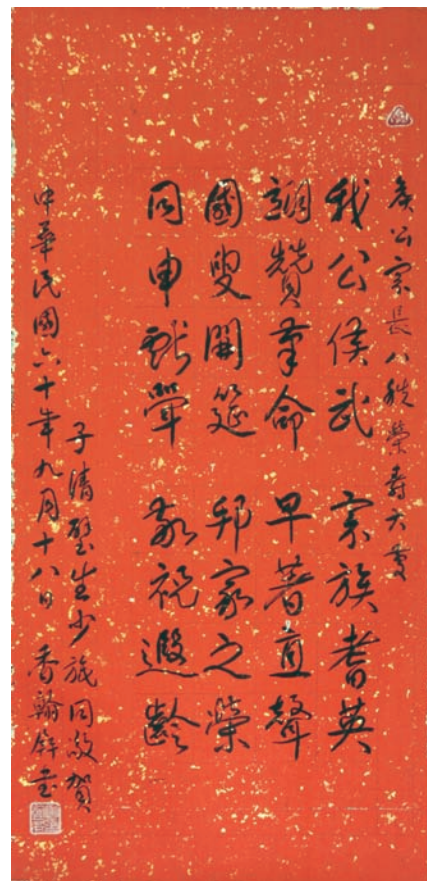 公宗長八秩榮壽大慶
我公侯武 宗族耆英
翊贊革命 早著直聲
國叟開筵 邦家之榮
同申 敬祝遐齡
子清璧生少旅同敬賀
中華民國六十年九月十八日 香翰屏書